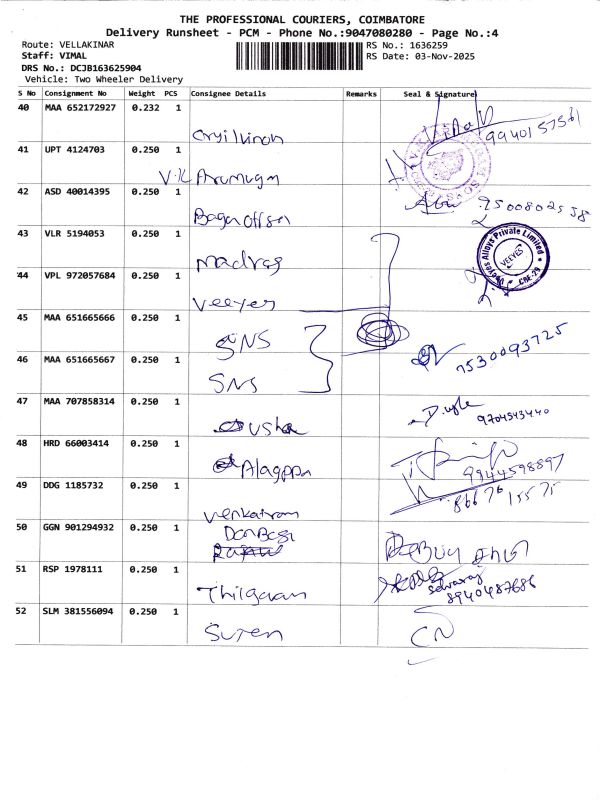 THE PROFESSIONAL COURIERS, COIMBATORE
Delivery Runsheet - PCM - Phone No.:9047080280 - Page No.:4
Route: VELLAKINAR RS No.: 1636259
Staff: VIMAL RS Date: 03-Nov-2025
DRS No.: DCJB163625904
Vehicle: Two Wheeler Delivery
S No Consignment No Weight PCS Consignee Details Remarks Seal & Signature
40 MAA 652172927 0.232 1
9940157561
41 UPT 4124703 0.250 1
V.K Arumugm
42 ASD 40014395 0.250 1
9500802538
43 VLR 5194053 0.250 1
Madras
Veeyes Alloys Private Limited
VEEYES
CBE-29
44 VPL 972057684 0.250 1
Veeyes
45 MAA 651665666 0.250 1
SNS
7530093725
46 MAA 651665667 0.250 1
SNS
47 MAA 707858314 0.250 1
usha
9704543440
48 HRD 66003414 0.250 1
Alagppa
9944598897
49 DDG 1185732 0.250 1
Venkatram
866 76 15575
50 GGN 901294932 0.250 1
51 RSP 1978111 0.250 1
Thilgavan
Selvaraj
8940487686
52 SLM 381556094 0.250 1
Suren